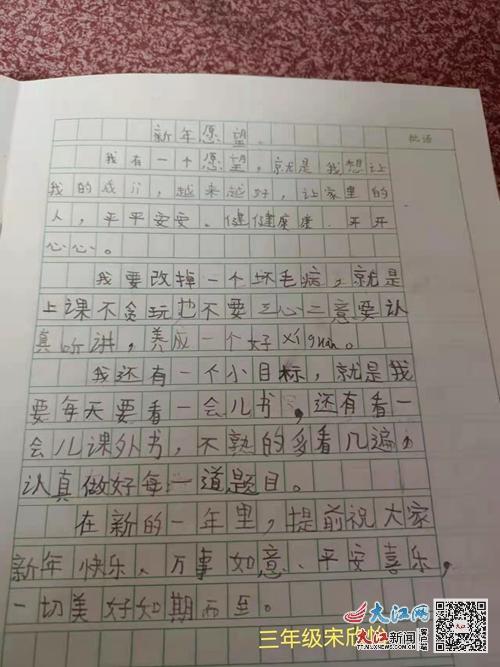 新年愿望。
批语
我有一个愿望，就是我想让
我的成jì，越来越好，让家里的
人，平平安安、健健康康、开开
心心。
我要改掉一个坏毛病，就是
上课不贪玩也不要三心二意要认
真听讲，养成一个好xíguàn。
我还有一个小目标，就是我
要每天要看一会儿书，还有看一
会儿课外书，不熟的多看几遍，
认真做好每一道题目。
在新的一年里，提前祝大家
新年快乐、万事如意、平安喜乐，
一切美好如期而至。
三年级宋欣怡
大江网
大江新闻